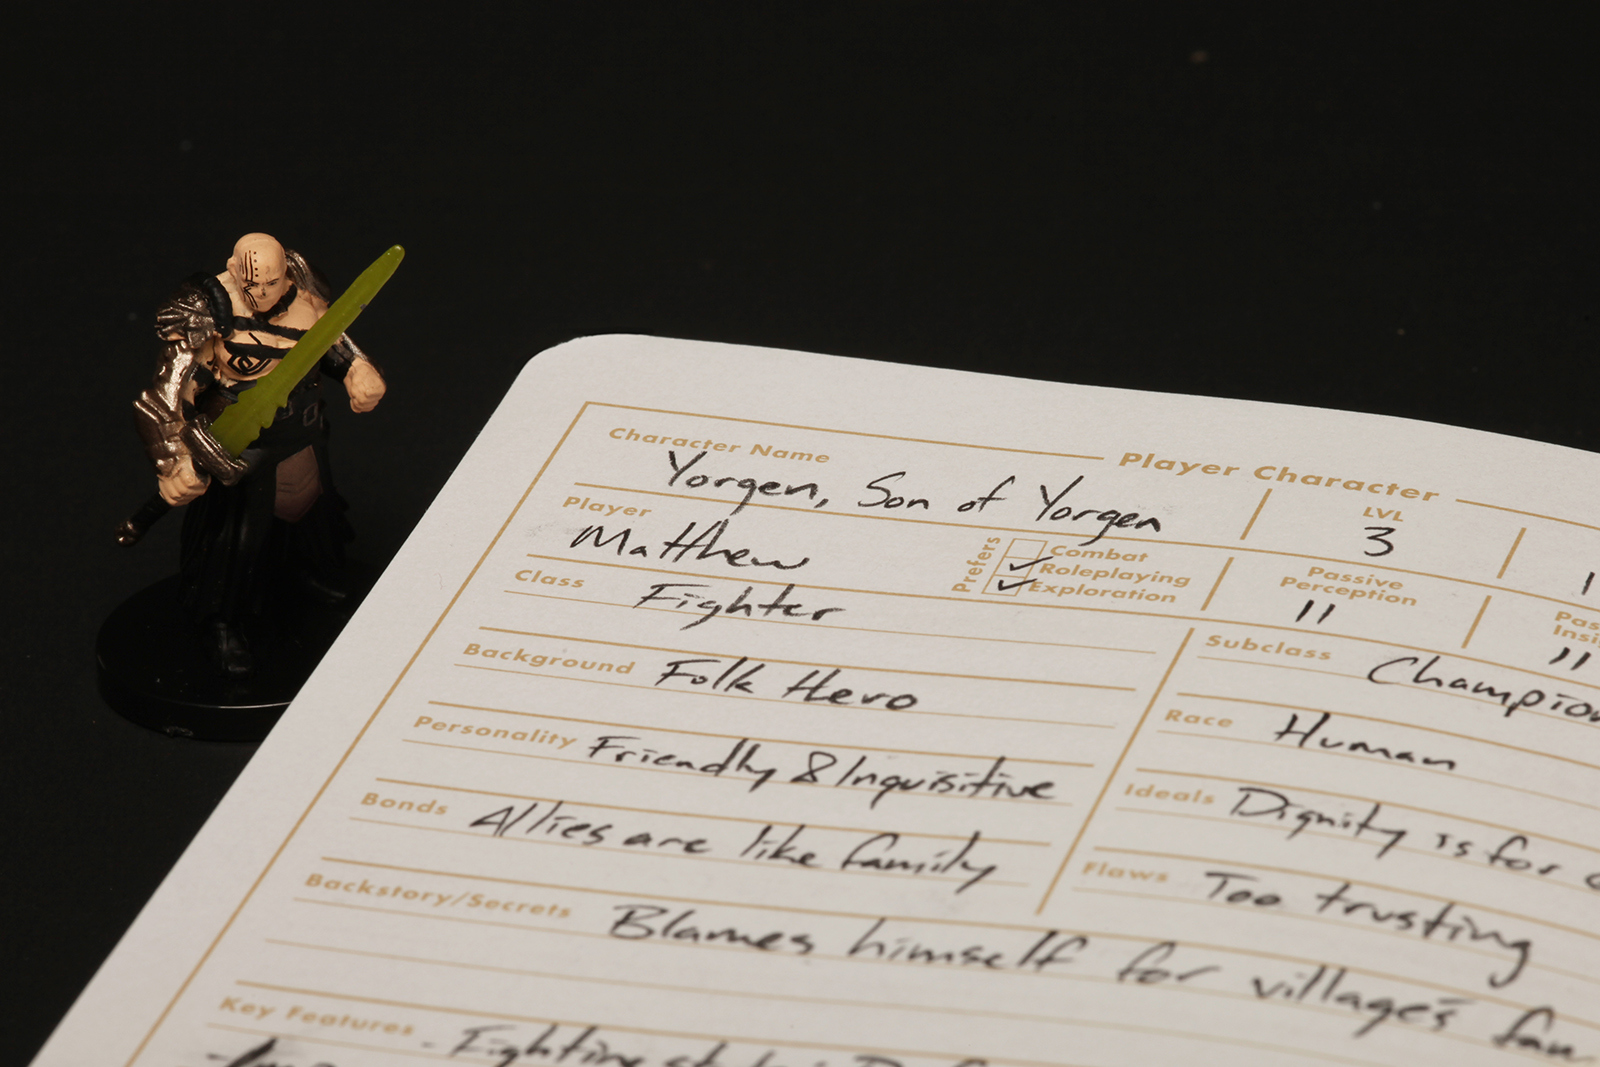 Player Character
Character Name Yorgen, Son of Yorgen
LVL 3
Player Matthew
Prefers
Combat
Roleplaying
Exploration
Passive Perception 11
11
Class Fighter
Subclass
Background Folk Hero
Race Human
Personality Friendly & Inquisitive
Ideals Dignity is for
Bonds Allies are like family
Flaws Too trusting
Backstory/Secrets Blames himself for village's
Key Features - Fighting